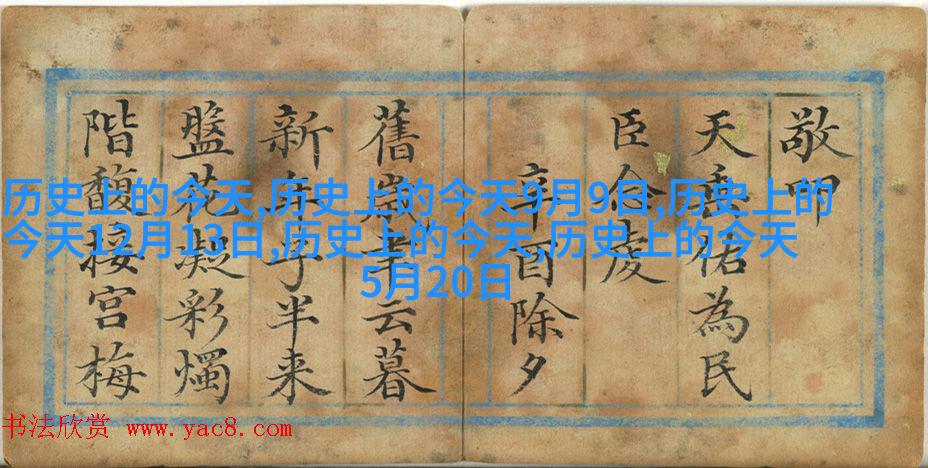 敬叩
天垂佑為民
臣念虔
辛酉除夕
舊歲聿云暮
新年子半来
盤花凝彩燭
階馥接宮梅
历史上的今天,历史上的今天9月9日,历史上的
今天12月13日,历史上的今天,历史上的今天
5月20日
书法欣赏 www.yac8.com